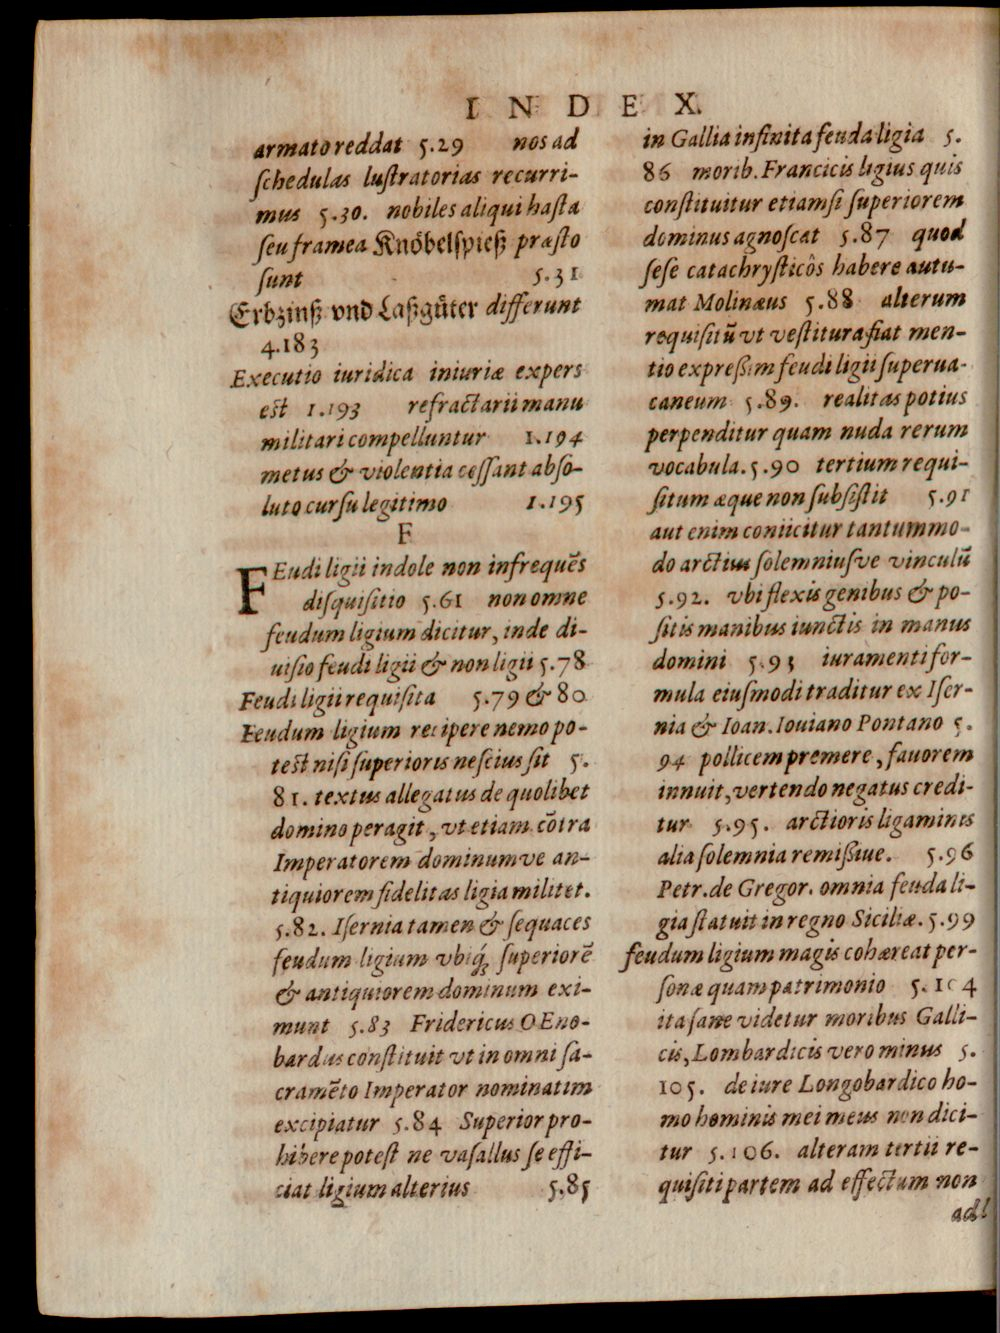 INDEX.
armato reddat 5.29 nos ad
ſchedulas luſtratorias recurri-
mus 5.30. nobiles aliqui haſta
ſeu framea Knöbelſpieß præſto
ſunt 5.31
Erbzinß vnd Laßgüter differunt
4.183
Executio iuridica iniuriæ expers
eſt 1.193 refractarii manu
militari compelluntur 1.194
metus & violentia ceſſant abſo-
luto curſu legitimo 1.195
F
FEudi ligii indole non infrequẽs
diſquiſitio 5.61 non omne
feudum ligium dicitur, inde di-
uiſio feudi ligii & non ligii 5.78
Feudi ligii requiſita 5.79 & 80
Feudum ligium recipere nemo po-
teſt niſi ſuperioris neſcius ſit 5.
81. textus allegatus de quolibet
domino peragit, vt etiam cõtra
Imperatorem dominumve an-
tiquiorem fidelitas ligia militet.
5.82. Iſernia tamen & ſequaces
feudum ligium vbiq́; ſuperiorẽ
& antiquiorem dominum exi-
munt 5.83 Fridericus OEno-
bardus conſtituit vt in omni ſa-
cramẽto Imperator nominatim
excipiatur 5.84 Superior pro-
hibere poteſt ne vaſallus ſe effi-
ciat ligium alterius 5.85
in Gallia infinita feuda ligia 5.
86 morib. Francicis ligius quis
conſtituitur etiamſi ſuperiorem
dominus agnoſcat 5.87 quod
ſeſe catachryſticôs habere autu-
mat Molinæus 5.88 alterum
requiſitũ vt veſtitura fiat men-
tio expreßim feudi ligii ſuperua-
caneum 5.89. realitas potius
perpenditur quam nuda rerum
vocabula. 5.90 tertium requi-
ſitum æque non ſubſiſtit 5.91
aut enim coniicitur tantummo-
do arctius ſolemniuſve vinculũ
5.92. vbi flexis genibus & po-
ſitis manibus iunctis in manus
domini 5.93 iuramenti for-
mula eiuſmodi traditur ex Iſer-
nia & Ioan. Iouiano Pontano 5.
94 pollicem premere, fauorem
innuit, vertendo negatus credi-
tur 5.95. arctioris ligaminis
alia ſolemnia remißiue. 5.96
Petr. de Gregor. omnia feuda li-
gia ſtatuit in regno Siciliæ. 5.99
feudum ligium magis cohæreat per-
ſonæ quam patrimonio 5.104
ita ſane videtur moribus Galli-
cis, Lombardicis vero minus 5.
105. de iure Longobardico ho-
mo hominis mei meus non dici-
tur 5.106. alteram tertii re-
quiſiti partem ad effectum non